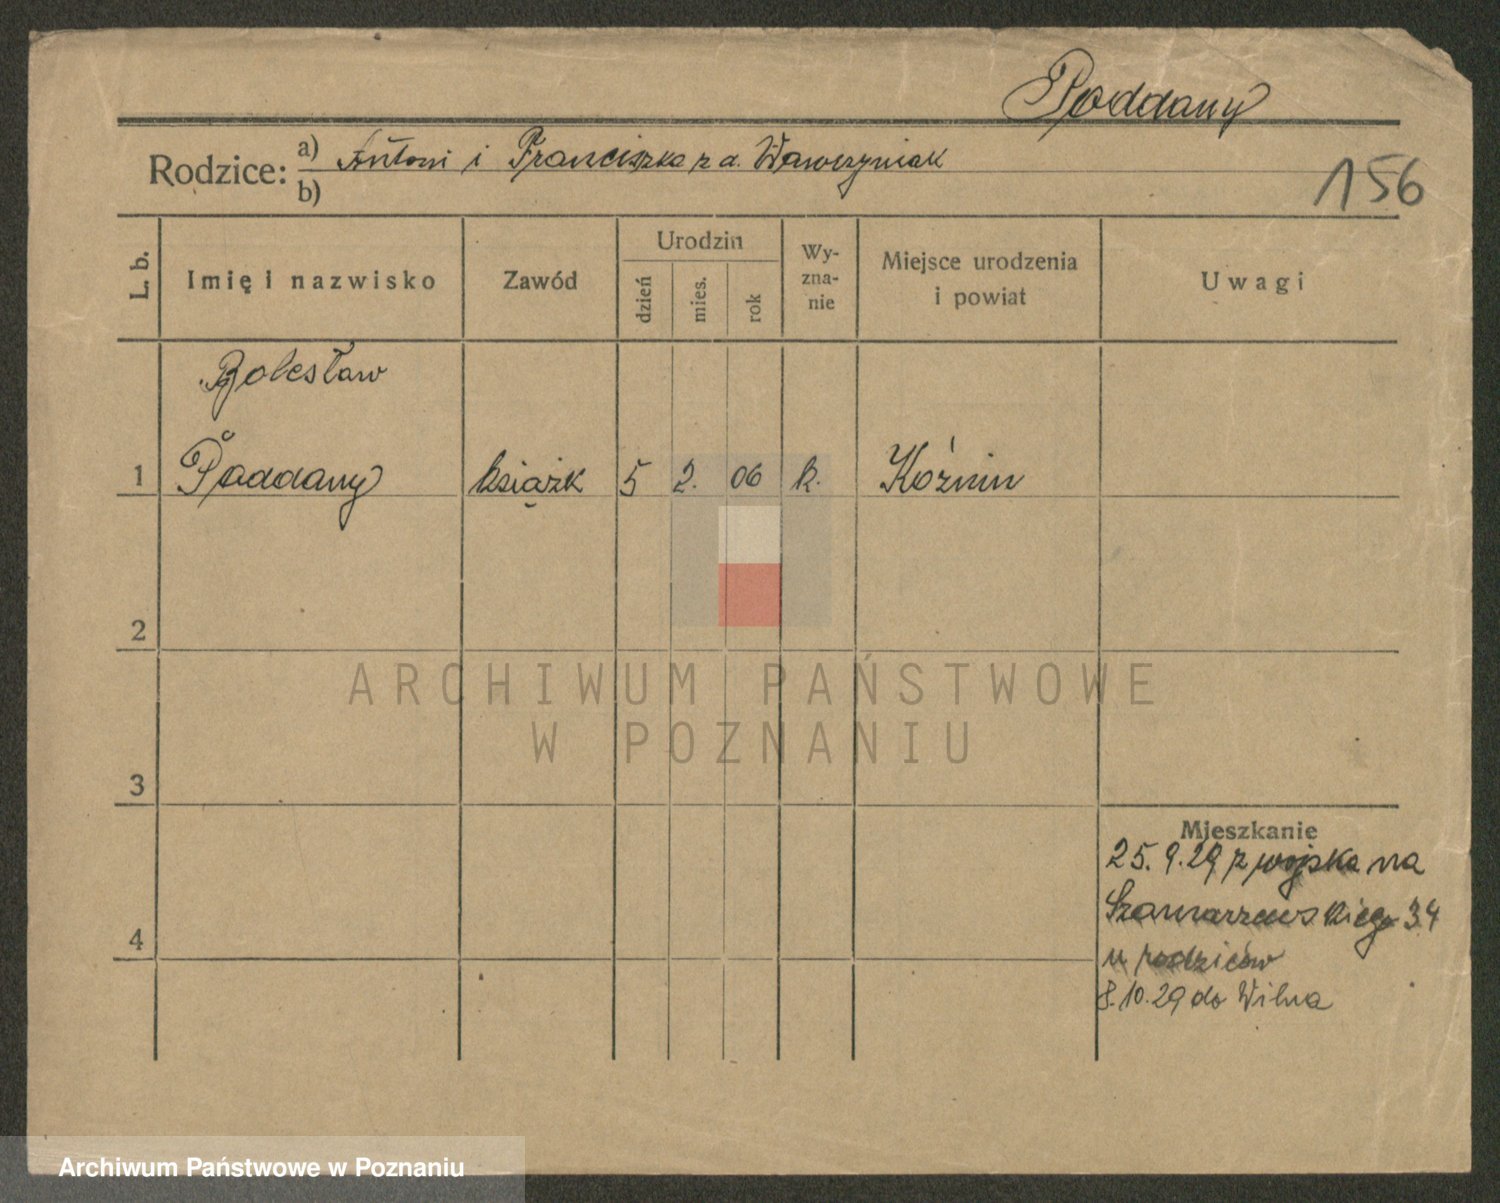 Poddany
Rodzice: a) Antoni i Franciszka z d. Wawrzyniak
b)
156
L. b.
Imię i nazwisko
Zawód
Urodzin
dzień
mies.
rok
Wy-
zna-
nie
Miejsce urodzenia
i powiat
Uwagi
Bolesław
1 Poddany książk 5 2. 06 k. Koźmin
2
3
4
Mieszkanie
25.9.29 z wojska na
Szamarzewskiego 34
u rodziców
8.10.29 do Wilna
ARCHIWUM PAŃSTWOWE
W POZNANIU
Archiwum Państwowe w Poznaniu